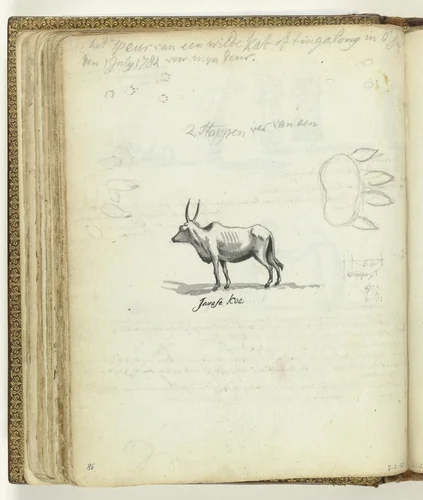 het speur van een wilde kat of tingalong in
den 1 July 1784 voor myn deur.
2 Stappen ver van een
Javase koe
86